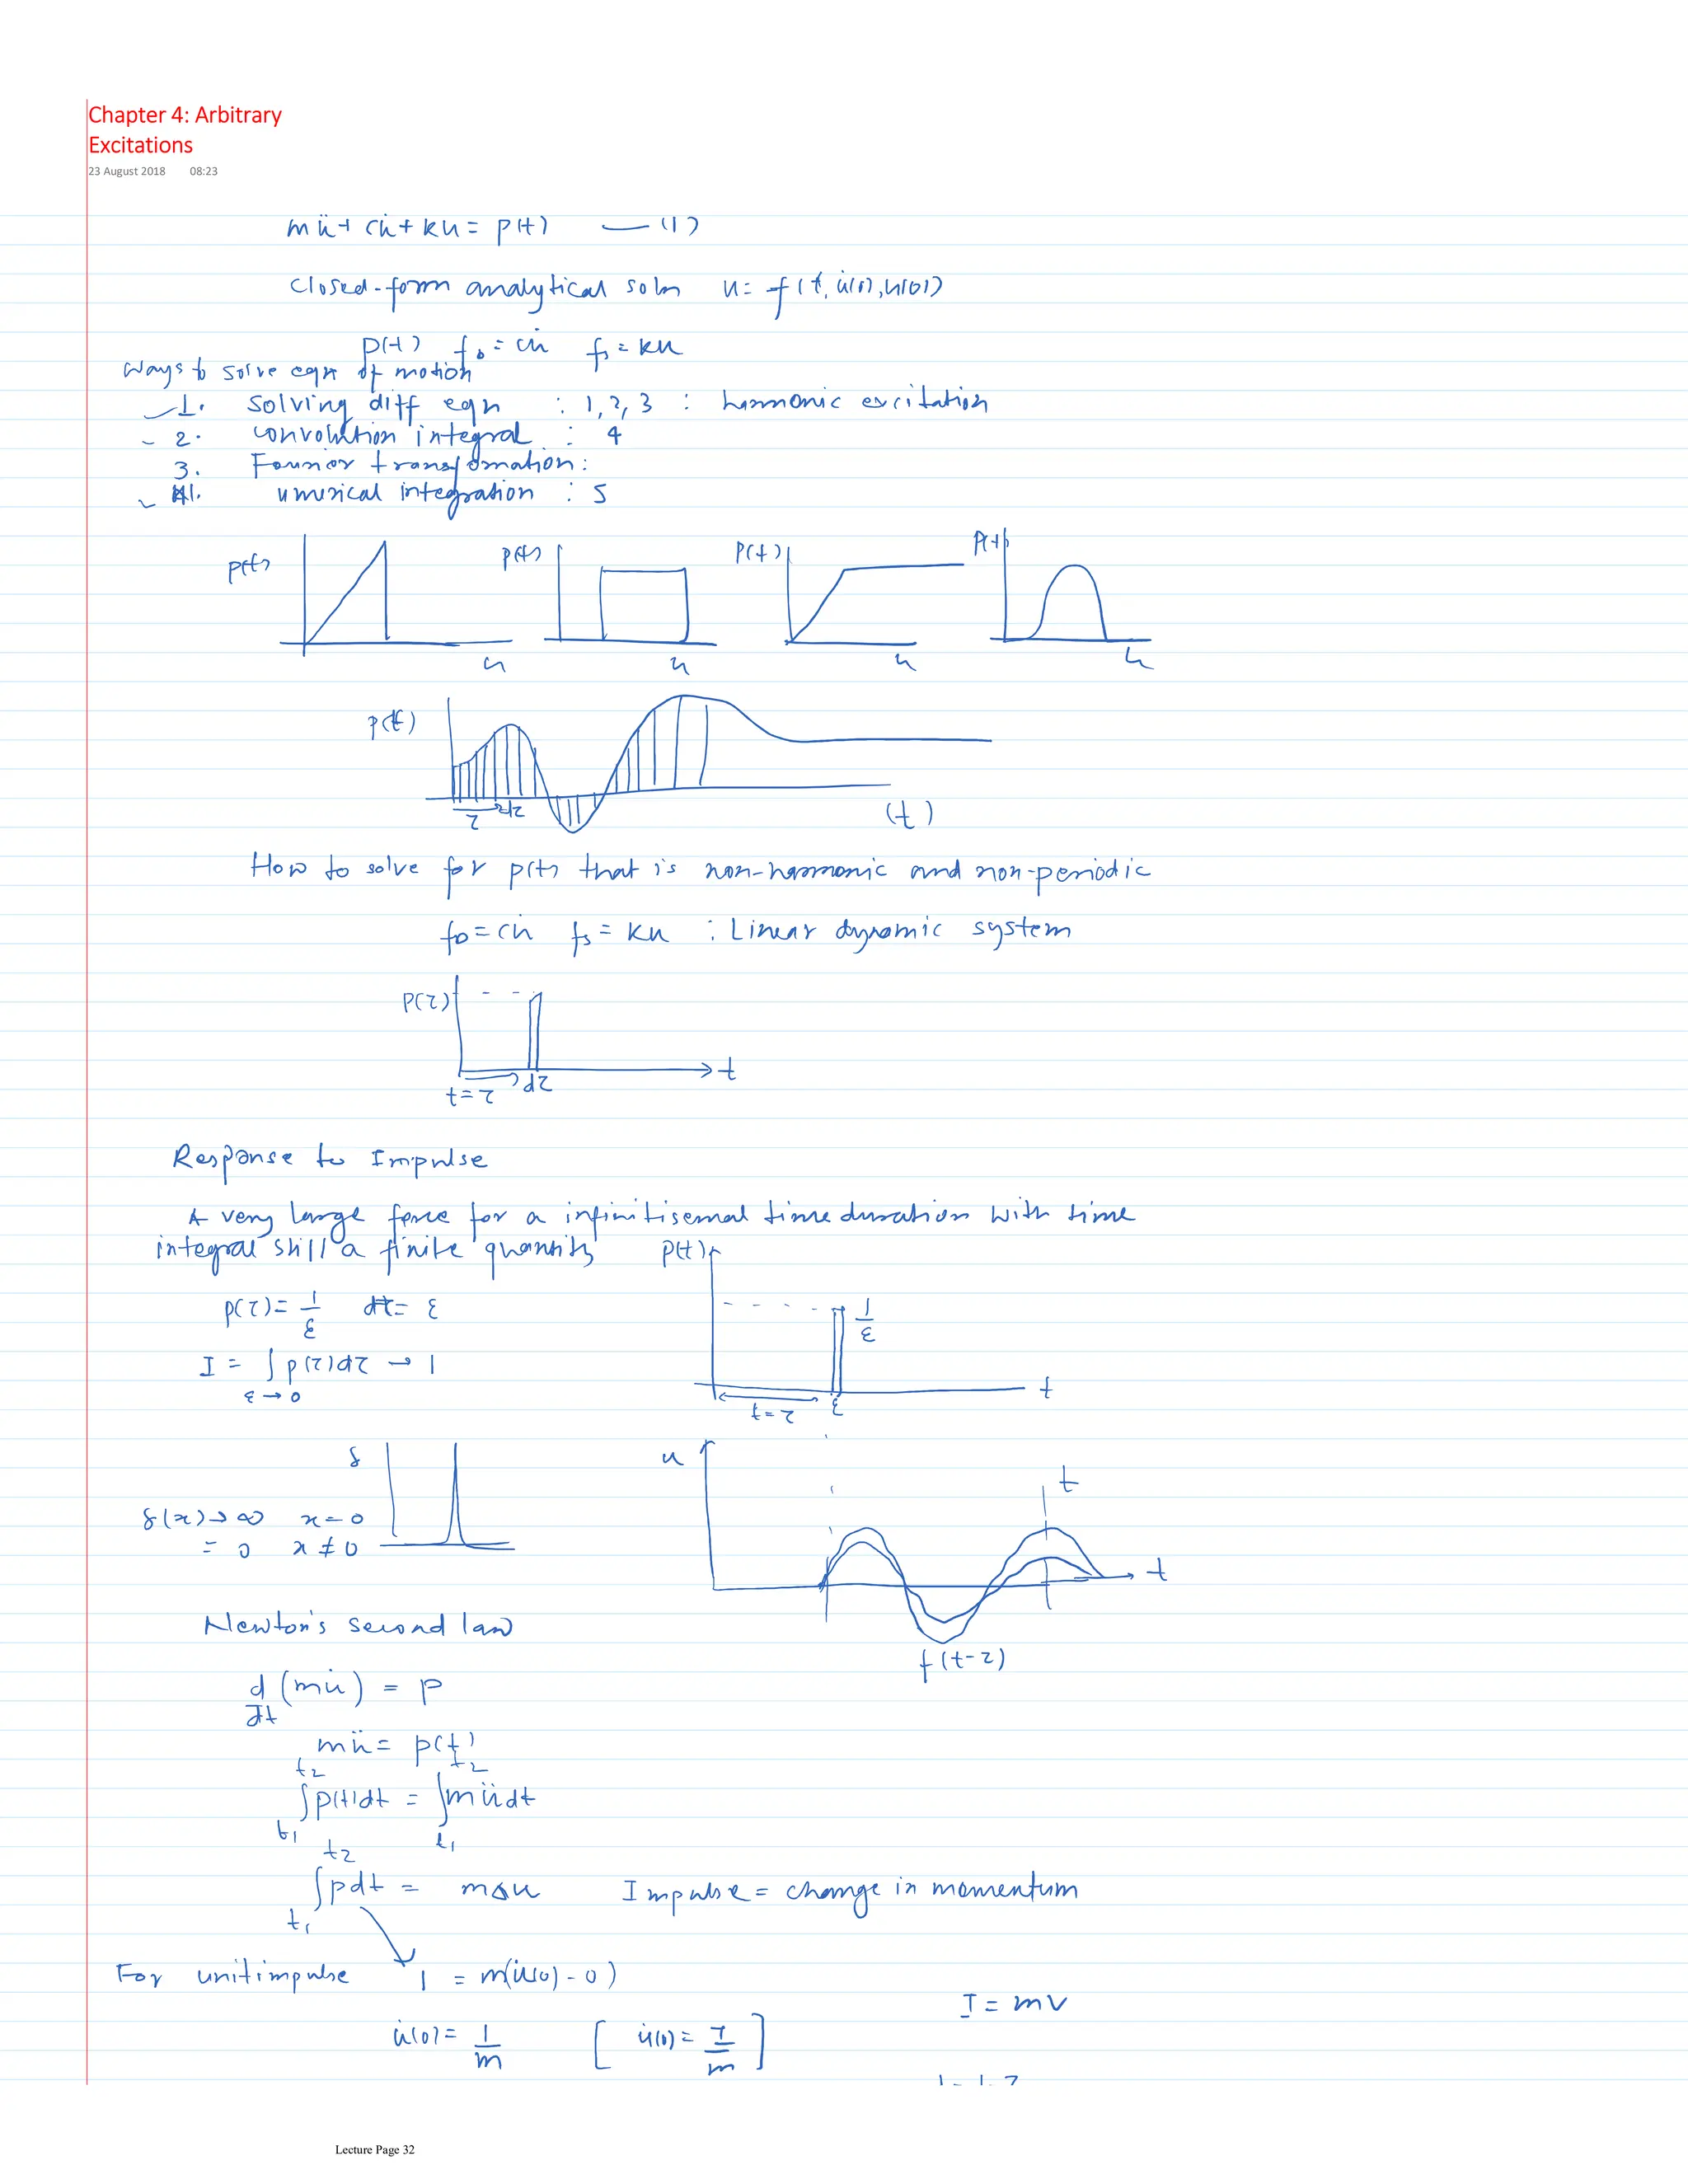 Chapter 4: Arbitrary
Excitations
23 August 2018 08:23
mü + cu̇ + ku = p(t) — (1)
closed-form analytical soln u = f(t, u̇(0), u(0))
p(t) f_D = cu̇ f_s = ku
Ways to solve eqn of motion
1. solving diff eqn : 1, 2, 3 : harmonic excitation
2. convolution integral : 4
3. Fourier transformation:
umerical integration : 5
p(t) p(t) p(t) p(t)
u u u u
p(t)
τ dτ (t)
How to solve for p(t) that is non-harmonic and non-periodic
f_D = cu̇ f_s = ku : Linear dynamic system
p(τ)
t
t=τ dτ
Response to Impulse
A very large force for a infinitisemal time duration with time
integral still a finite quantity p(t)
p(τ) = 1/ε dt = ε 1/ε
I = ∫ p(τ)dτ → 1
ε → 0
t
t=τ ε
δ u
t
δ(x) → ∞ x = 0
= 0 x ≠ 0
t
Newton's second law
f(t-τ)
d/dt (mu̇) = p
mü = p(t)
t2 t2
∫p(t)dt = ∫müdt
t1 t1
t2
∫pdt = mΔu Impulse = change in momentum
t1
For unit impulse 1 = m(u̇(0) - 0)
I = mv
u̇(0) = 1/m [ u̇(0) = I/m ]
Lecture Page 32